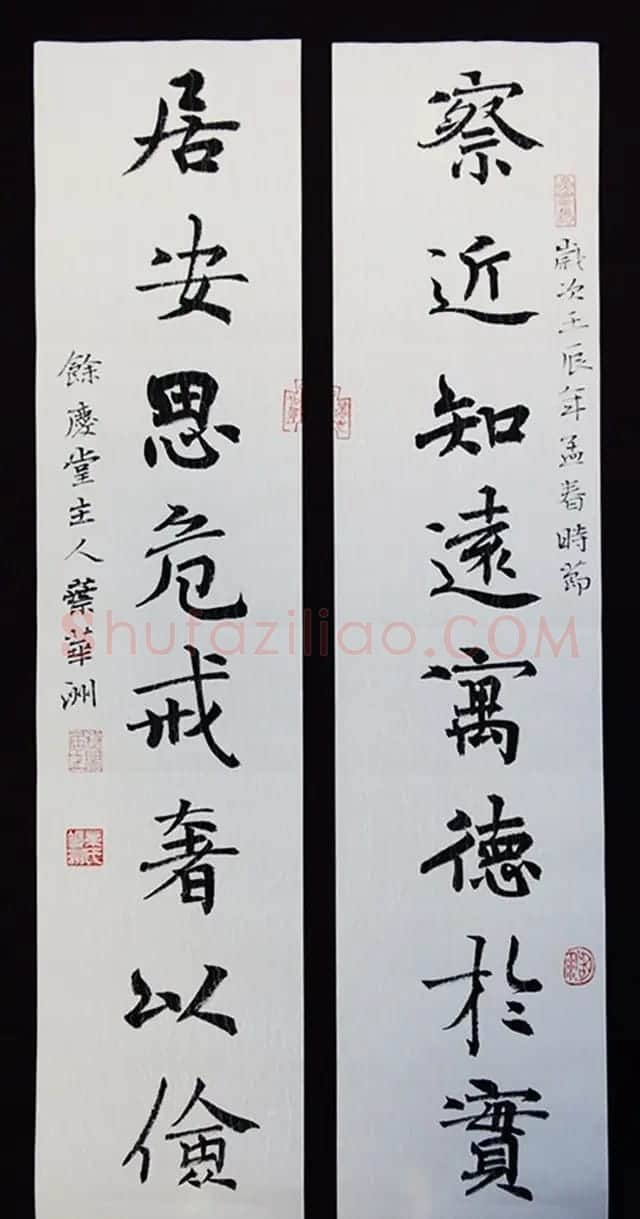 察近知遠寓德於實
歲次壬辰年孟春時節
居安思危戒奢以儉
餘慶堂主人蔡華洲
Shufaziliao.COM